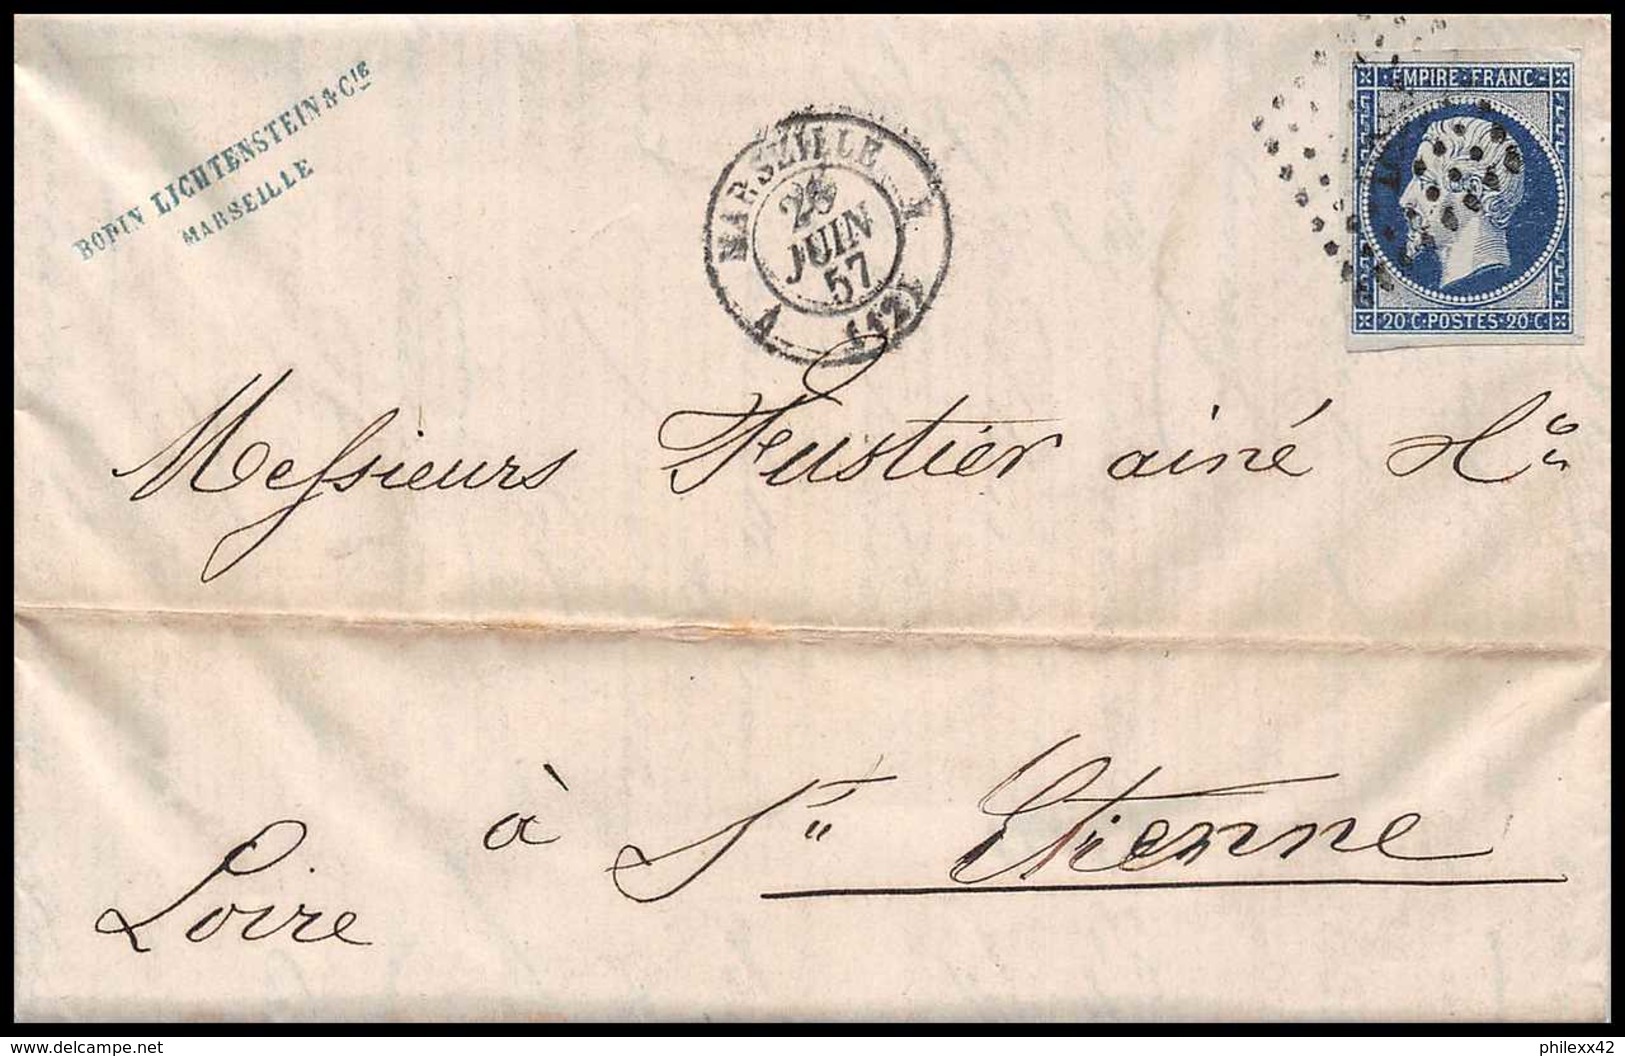 BODIN LICHTENSTEIN & CIE
MARSEILLE
MARSEILLE
JUIN
57
A (12)
EMPIRE FRANC
20 C POSTES 20 C
Messieurs Fustier ainé
à St Etienne
Loire
delcampe.net
philexx42